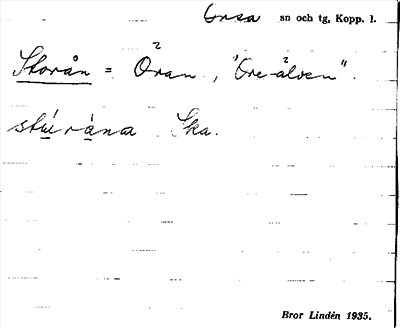 Orsa sn och tg, Kopp. l.
Storån = Oran, "Ore-älven".
stúrȧna Ska.
Bror Lindén 1935.